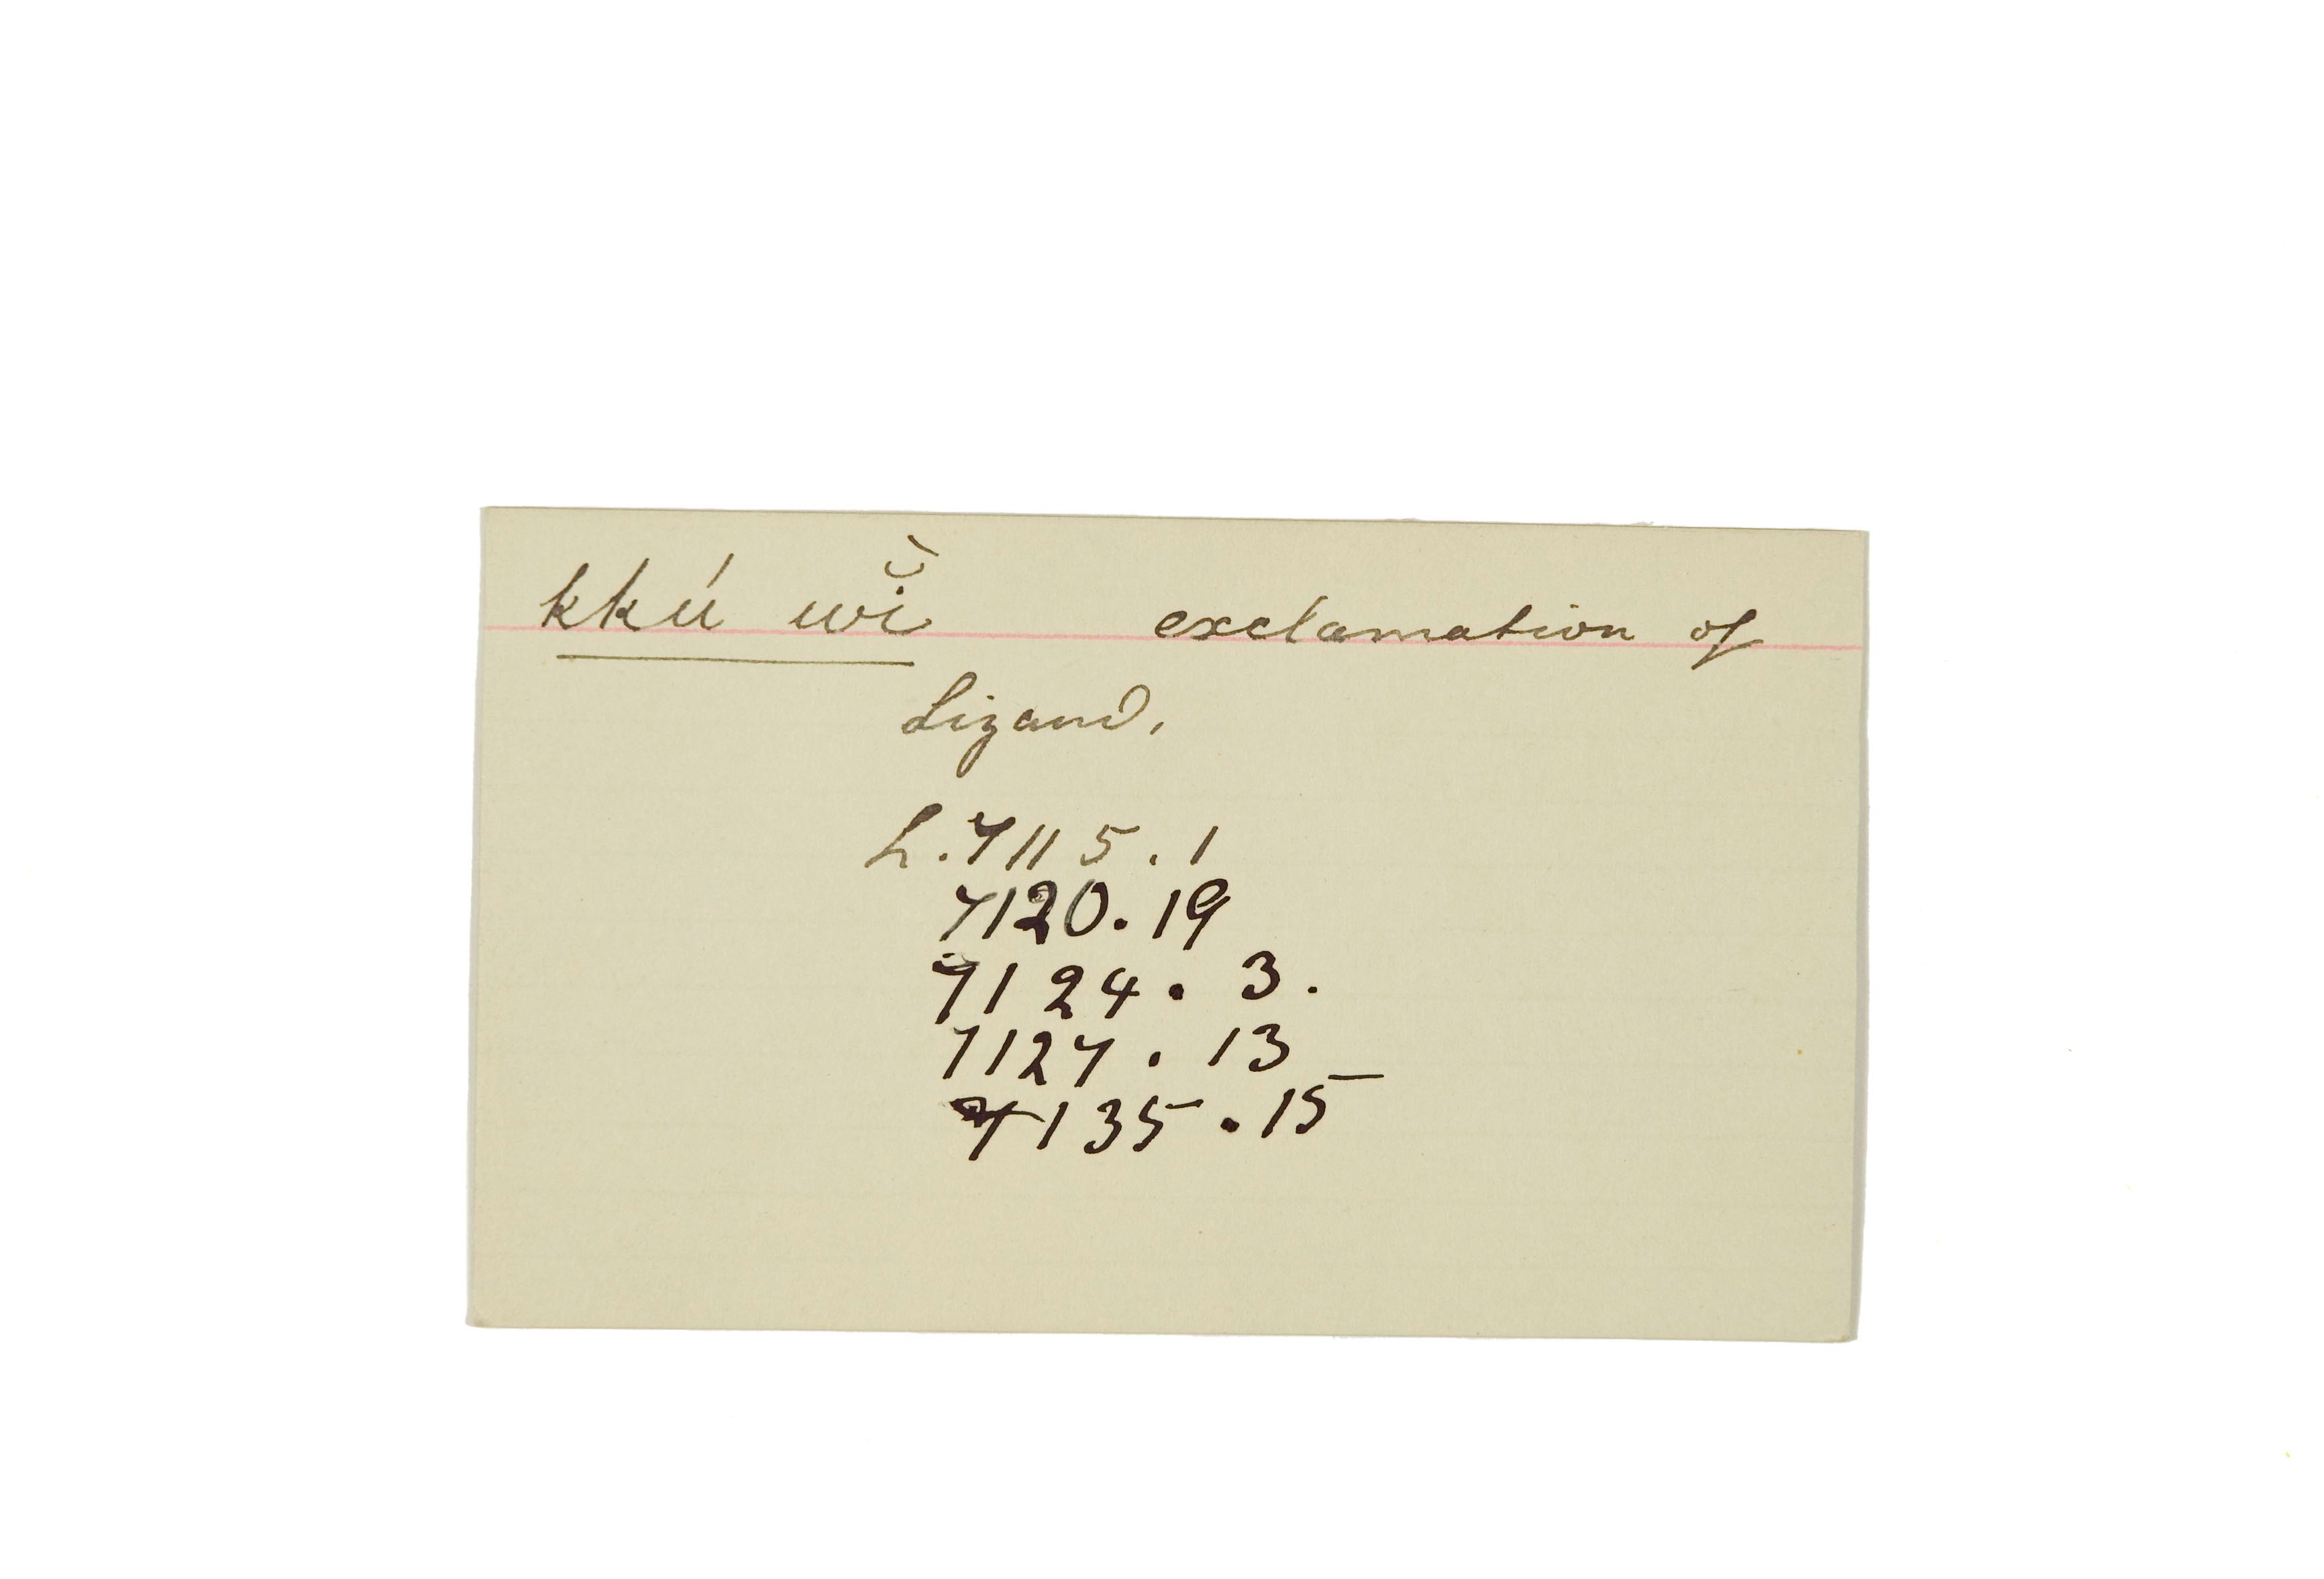 kkú wĭ́ exclamation of
Lizard.
L. 7115.1
7120.19
7124.3.
7127.13
7135.15